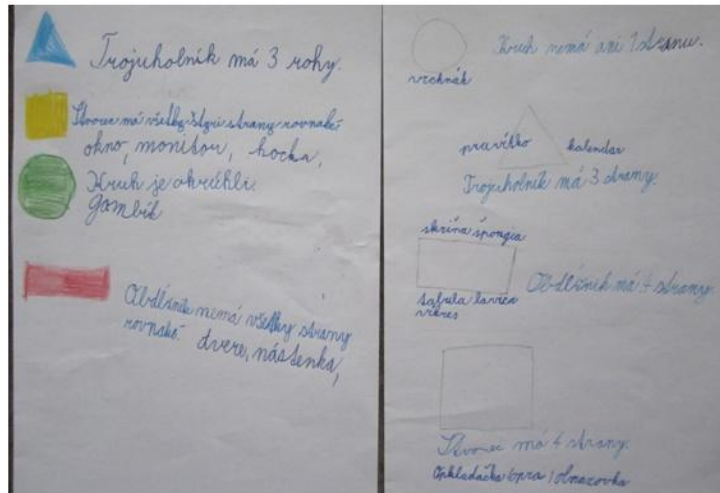 Trojuholník má 3 rohy.
Štvorec má všetky štyri strany rovnaké
okno, monitor, kocka,
Kruh je okrúhli.
gombík
Obdĺžnik nemá všetky strany
rovnaké. dvere, nástenka,
Kruh nemá ani 1 stranu.
vrchnák
pravítko kalendar
Trojuholník má 3 strany.
skriňa špongia
Obdĺžnik má 4 strany
tabuľa lavica
Štvorec má 4 strany.
obrazovka